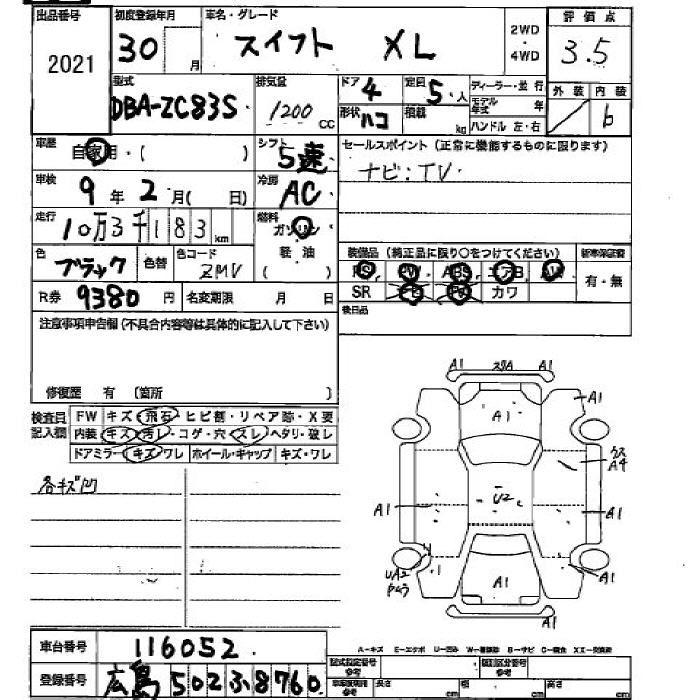 出品番号 初度登録年月 車名・グレード 評価点
2021 30 月 スイフト XL 2WD・4WD 3.5
型式 排気量 ドア 4 定員 5人 ディーラー・並行 外装 内装
DBA-ZC83S 1200 cc 形状 ハコ 積載 kg モデル年式 年 b
ハンドル 左・右
車歴 自家用・( ) シフト 5速 セールスポイント (正常に機能するものに限ります)
車検 9年2月( 日) 冷房 AC ナビ:TV
走行 10万3千183km 燃料 ガソリン
軽油
( )
色 ブラック 色替 色コード ZMV 装備品 (純正品に限り○をつけてください) 新車保証書
PS・PW・ABS・エアB・AW 有・無
R券 9380円 名変期限 月 日 SR カワ
注意事項申告欄(不具合内容等は具体的に記入して下さい) 後日品
修復歴 有 〔箇所 〕
検査員 FW キズ・飛石・ヒビ割・リペア跡・X要
記入欄 内装 キズ・汚レ・コゲ・穴・スレ・ヘタリ・破レ
ドアミラー・キズ・ワレ ホイール・キャップ キズ・ワレ
各キズ凹
A1 A1
A1 A1
A4
U2
A1 A1
UA2
A1 A1
A1
車台番号 116052
A-キズ E-エクボ U-凹み W-補修跡 B-サビ C-腐食 XX-交換済
登録番号 広島502ふ8760
型式指定番号 参考 類別区分番号 参考
車庫証明用 参考 長さ cm 幅 cm 高さ cm